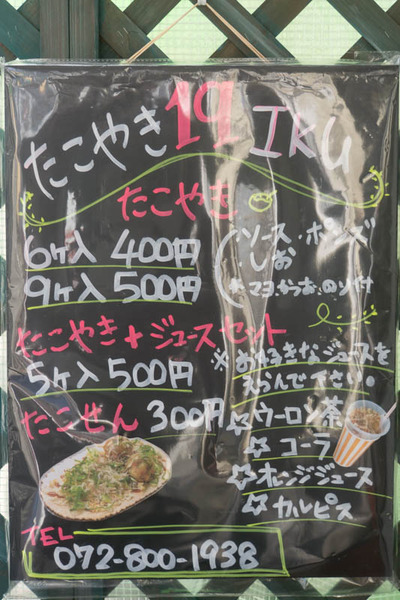 たこやき 19 IKU
たこやき
6ヶ入 400円
9ヶ入 500円
(ソース・ポンズ
しお
*マヨ・かつお・のり付
たこやき+ジュースセット
5ヶ入 500円
※お好きなジュースを
えらんで下さい。
たこせん 300円
☆ウーロン茶
☆コーラ
☆オレンジジュース
☆カルピス
TEL
072-800-1938